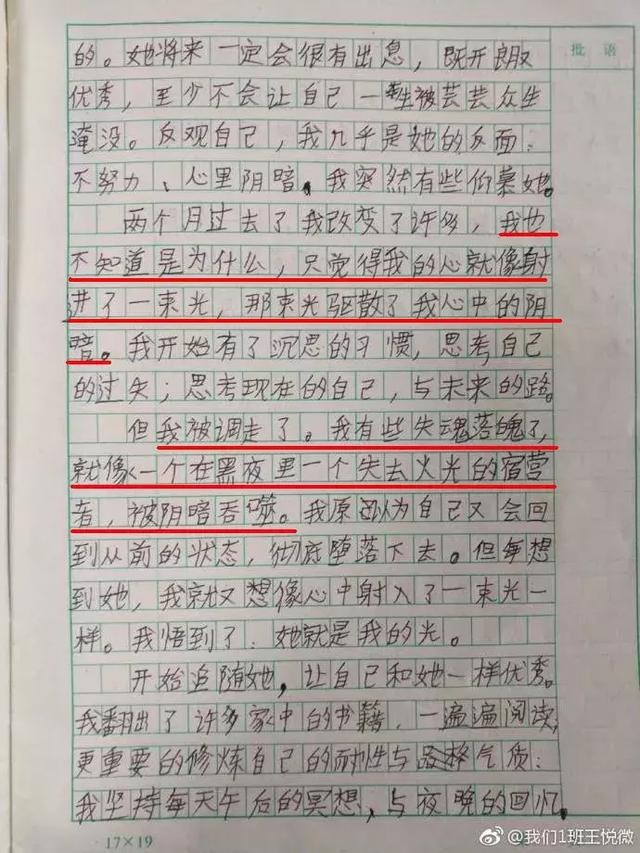 批语
的。她将来一定会很有出息，既开朗又
优秀，至少不会让自己一生被芸芸众生
淹没。反观自己，我几乎是她的反面：
不努力、心里阴暗。我突然有些仰慕她。
两个月过去了我改变了许多，我也
不知道是为什么，只觉得我的心就像射
进了一束光，那束光驱散了我心中的阴
暗。我开始有了沉思的习惯，思考自己
的过失；思考现在的自己，与未来的路。
但我被调走了。我有些失魂落魄了，
就像一个在黑夜里一个失去火光的宿营
者，被阴暗吞噬。我原还以为自己又会回
到从前的状态，彻底堕落下去。但每想
到她，我就又想像心中射入了一束光一
样。我悟到了：她就是我的光。
开始追随她，让自己和她一样优秀。
我翻出了许多家中的书籍，一遍遍阅读，
更重要的修炼自己的耐性与品格气质：
我坚持每天午后的冥想，与夜晚的回忆。
17×19
@我们1班王悦微